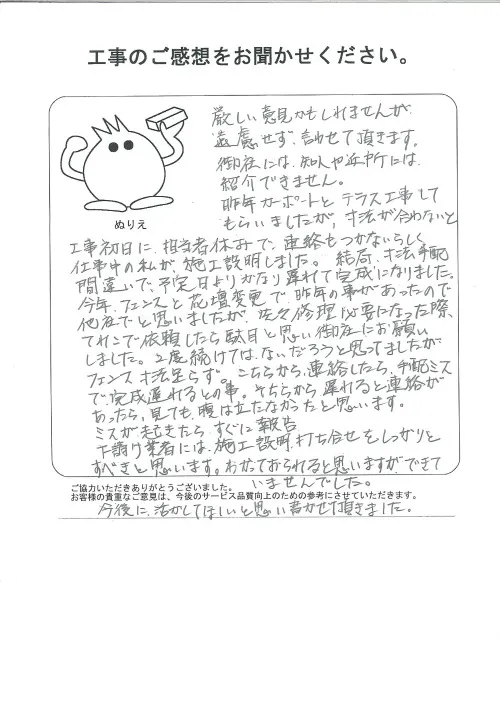 工事のご感想をお聞かせください。
厳しい意見かもしれませんが
遠慮せず、言わせて頂きます。
御社には、知人や近所には、
紹介できません。
昨年カーポートとテラス工事して
もらいましたが、寸法が合わないと
ぬりえ
工事初日に、担当者休みで、連絡もつかないらしく
仕事中の私が、施工説明しました。結局、寸法、手配
間違いで、予定日よりかなり遅れて完成になりました。
今年、フェンスと花壇変更で、昨年の事があったので
他社でと思いましたが、後々修理必要になった際、
てれこで依頼したら駄目と思い御社にお願い
しました。2度続けては、ないだろうと思ってましたが
フェンス寸法足らず。こちらから、連絡したら、手配ミス
で、完成遅れるとの事。そちらから遅れると連絡が
あったら、見ても、腹は立たなかったと思います。
ミスが起きたら、すぐに報告
下請け業者には、施工説明、打ち合せをしっかりと
すべきと思います。わかっておられると思いますが、できて
いませんでした。
ご協力いただきありがとうございました。
お客様の貴重なご意見は、今後のサービス品質向上のための参考にさせていただきます。
今後に、活かしてほしいと思い書かせて頂きました。